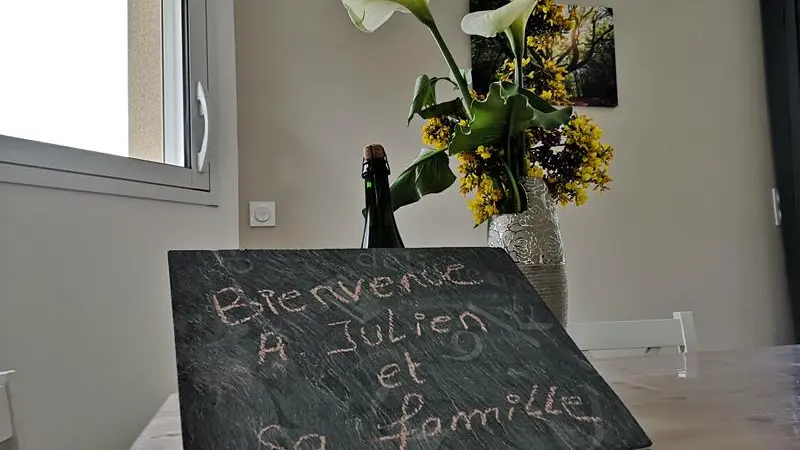 Bienvenue
A Julien
et
sa famille